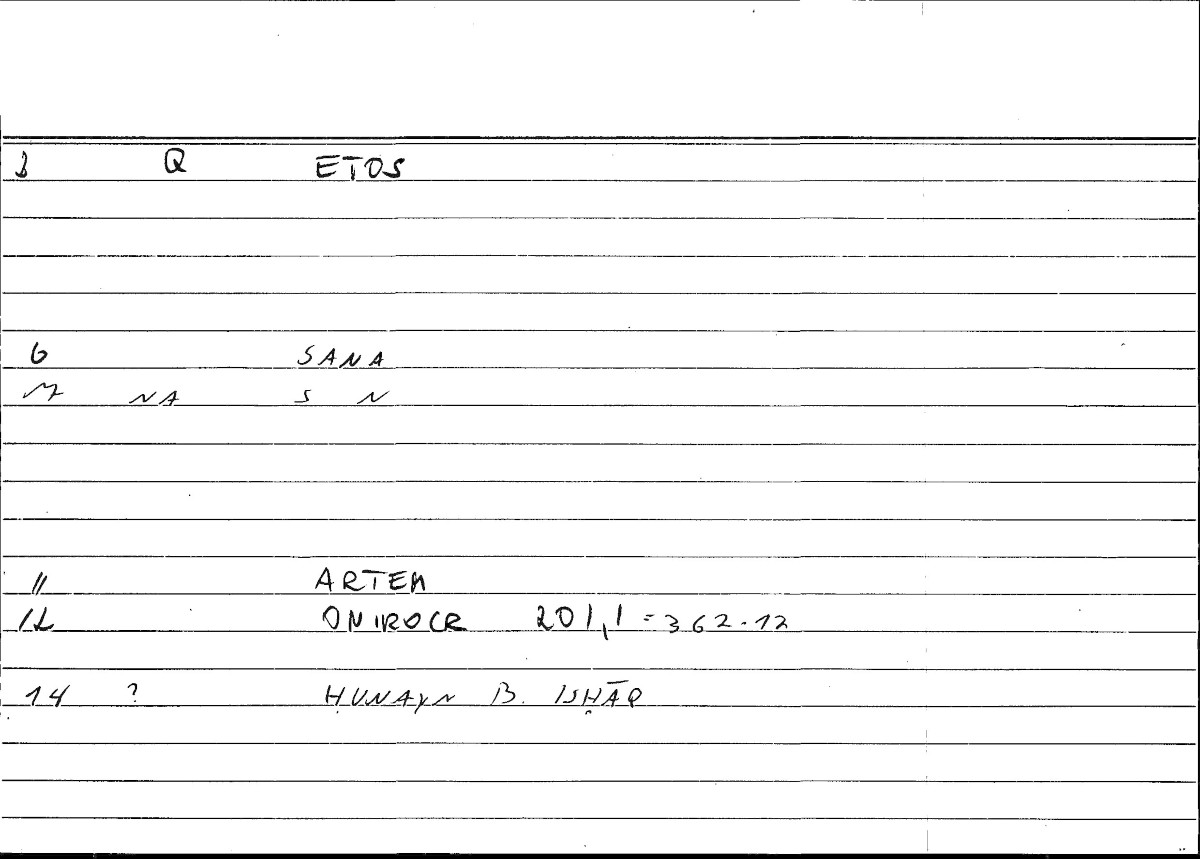 3 Q ETOS
6 SANA
M NA S N
11 ARTEM
12 ONIROCR 201,1 = 362.12
14 ? ḤUNAYN B. ISḤĀQ